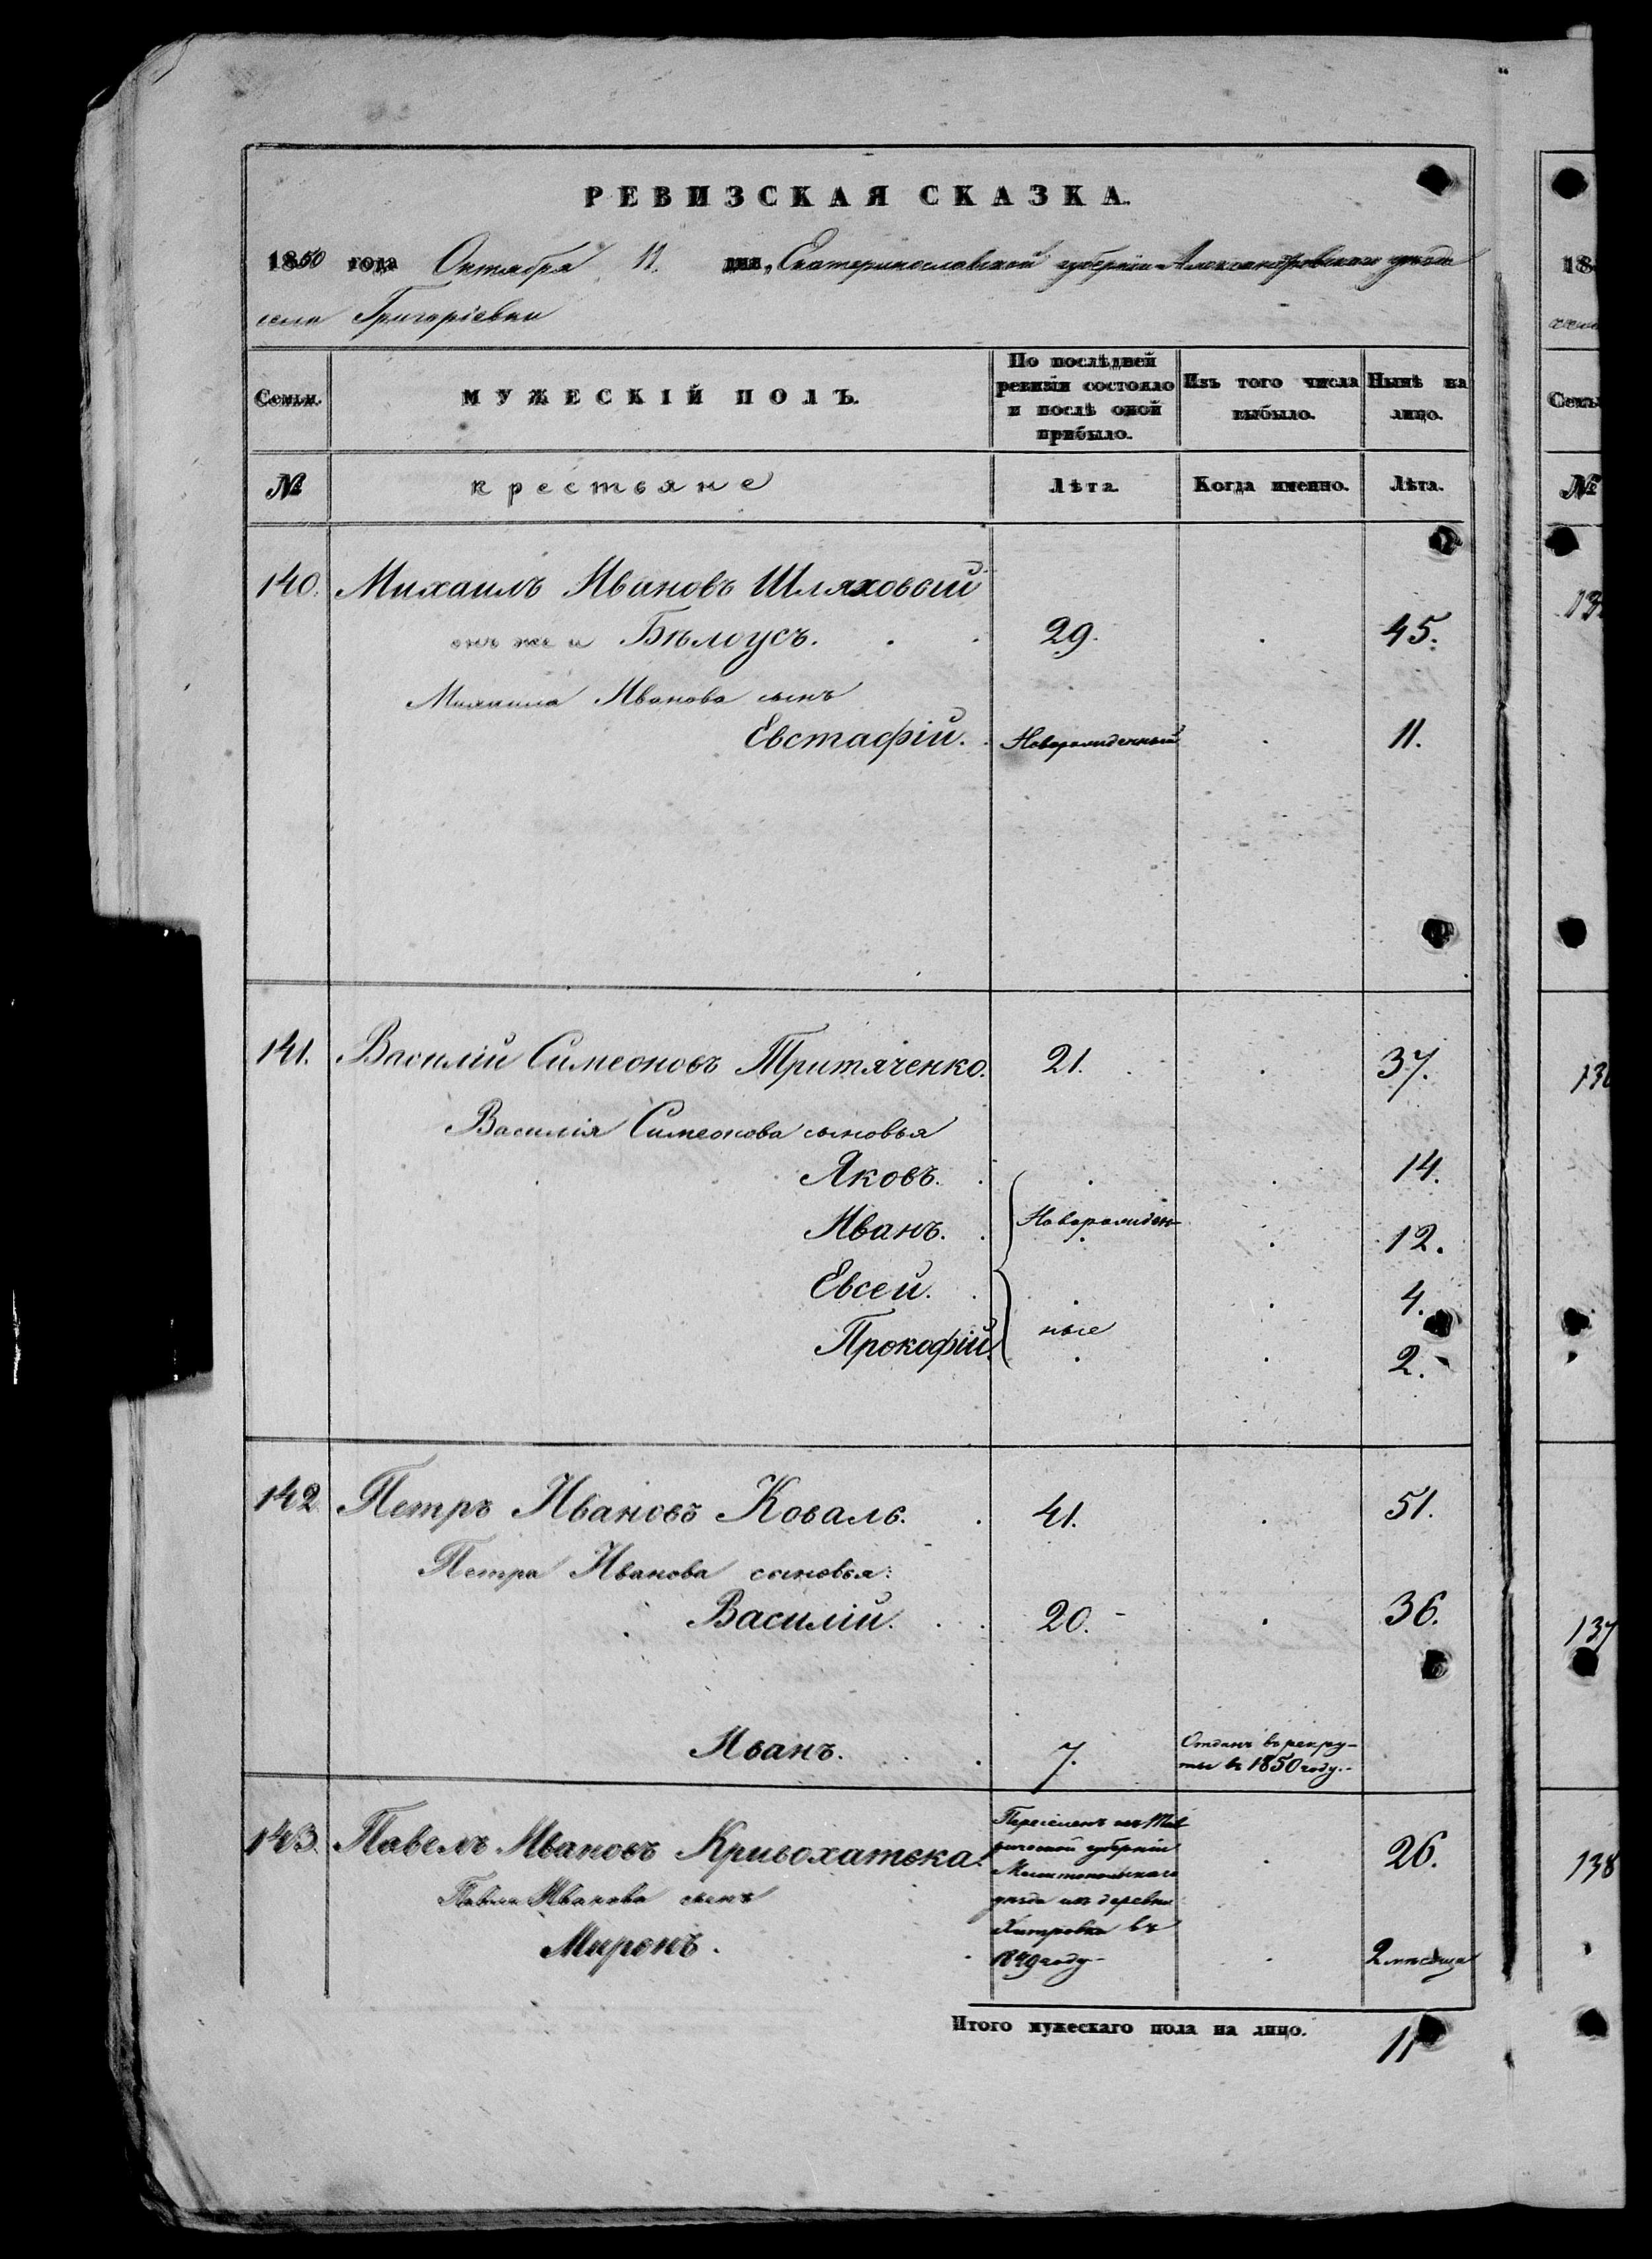 РЕВИЗСКАЯ СКАЗКА.
1850 года Октября 11. дня, Екатеринославской губерніи Александровскаго уѣзда
села Григоріевки
Семьи. МУЖЕСКІЙ ПОЛЪ. По послѣдней ревизіи состояло и послѣ оной прибыло. Изъ того числа выбыло. Нынѣ на лицо.
№ крестьяне Лѣта. Когда именно. Лѣта.
140. Михаилъ Ивановъ Шляховой
онъ же и Бѣлоусъ. 29. 45.
Михаила Иванова сынъ
Евстафій. Новорожденный 11.
141. Василій Симеоновъ Тритяченко. 21. 37.
Василія Симеонова сыновья
Яковъ. 14.
Иванъ. Новорожден- 12.
Евсей. 4.
Прокофій. ные 2.
142 Петръ Ивановъ Коваль. 41. 51.
Петра Иванова сыновья:
Василій. 20. 36.
Иванъ. 7. Отданъ въ рекру-
ты въ 1850 году.
143. Павелъ Ивановъ Кривохатька. 26.
Павла Иванова сынъ
Миронъ. 2 мѣсяца
губерніи
Мелитопольскаго
уѣзда изъ деревни
въ
1849 году
Итого мужескаго пола на лицо. 11
18
Семьи
№
137
138